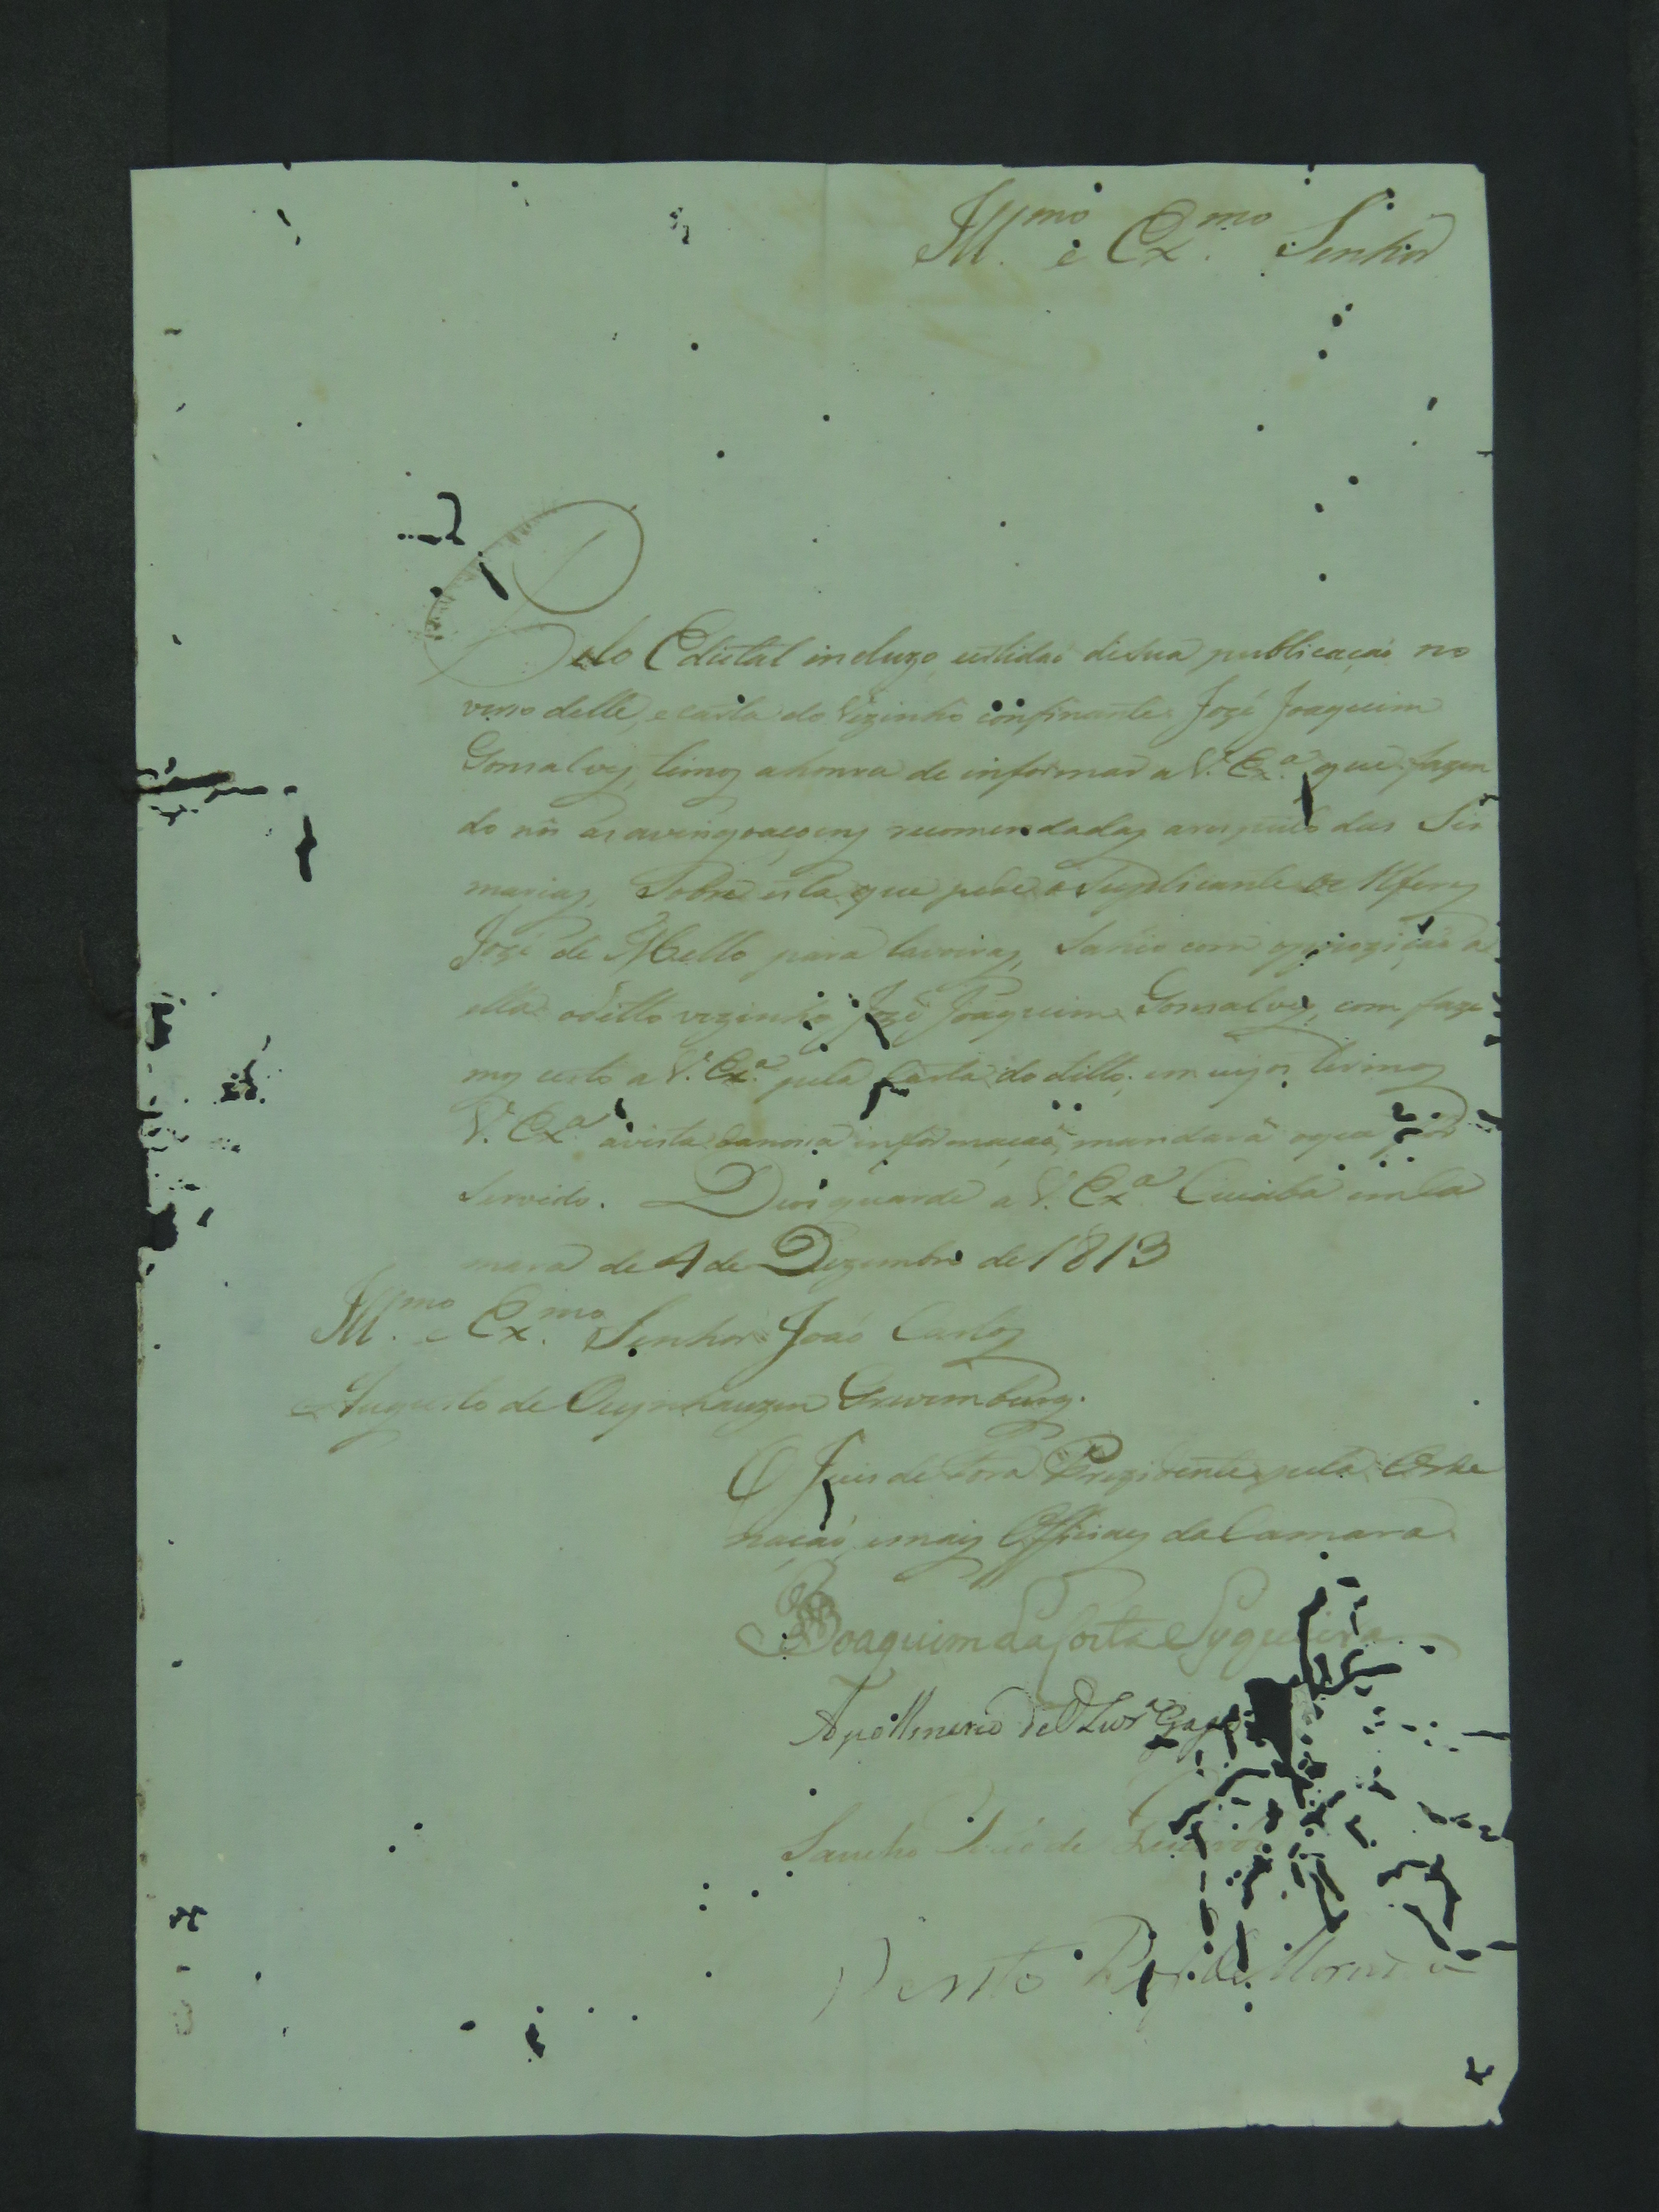 Ill.mo e Ex.mo Senhor
Pelo Edictal incluzo, certidaõ desua publicaçaõ no
verso delle, e carta do vezinho confinante Jozé Joaquim
Gonsalves, temos ahonra de informar a V. Ex.a que fazen
do nós as averiguaçoens recomendadas arespeito das Sis
marias, Sobre esta que pede o Suplicante o Alferes
Jozé de Mello para lavoiras, Sahio com opozição a
ella oditto vezinho Jozé Joaquim Gonsalves, com faze
mos certo a V. Ex.a pela Carta do ditto; em cujos termos
V. Ex.a avista danossa informaçaõ, mandará oque for
Servido. Deos guarde a V. Ex.a Cuiabá em Ca
mara de 4 de Dezembro de 1813
Ill.mo e Ex.mo Senhor Joaõ Carlos
Augusto de Oeynhauzen Grevemburg.
O Juis de Fora Prezidente pela Orde
naçaõ, emais Officiaes da Camara
Joaquim da Costa Syqueira
Apollinario de Olivr.a Gago
Sancho João de Queirós
Bento de Moreira